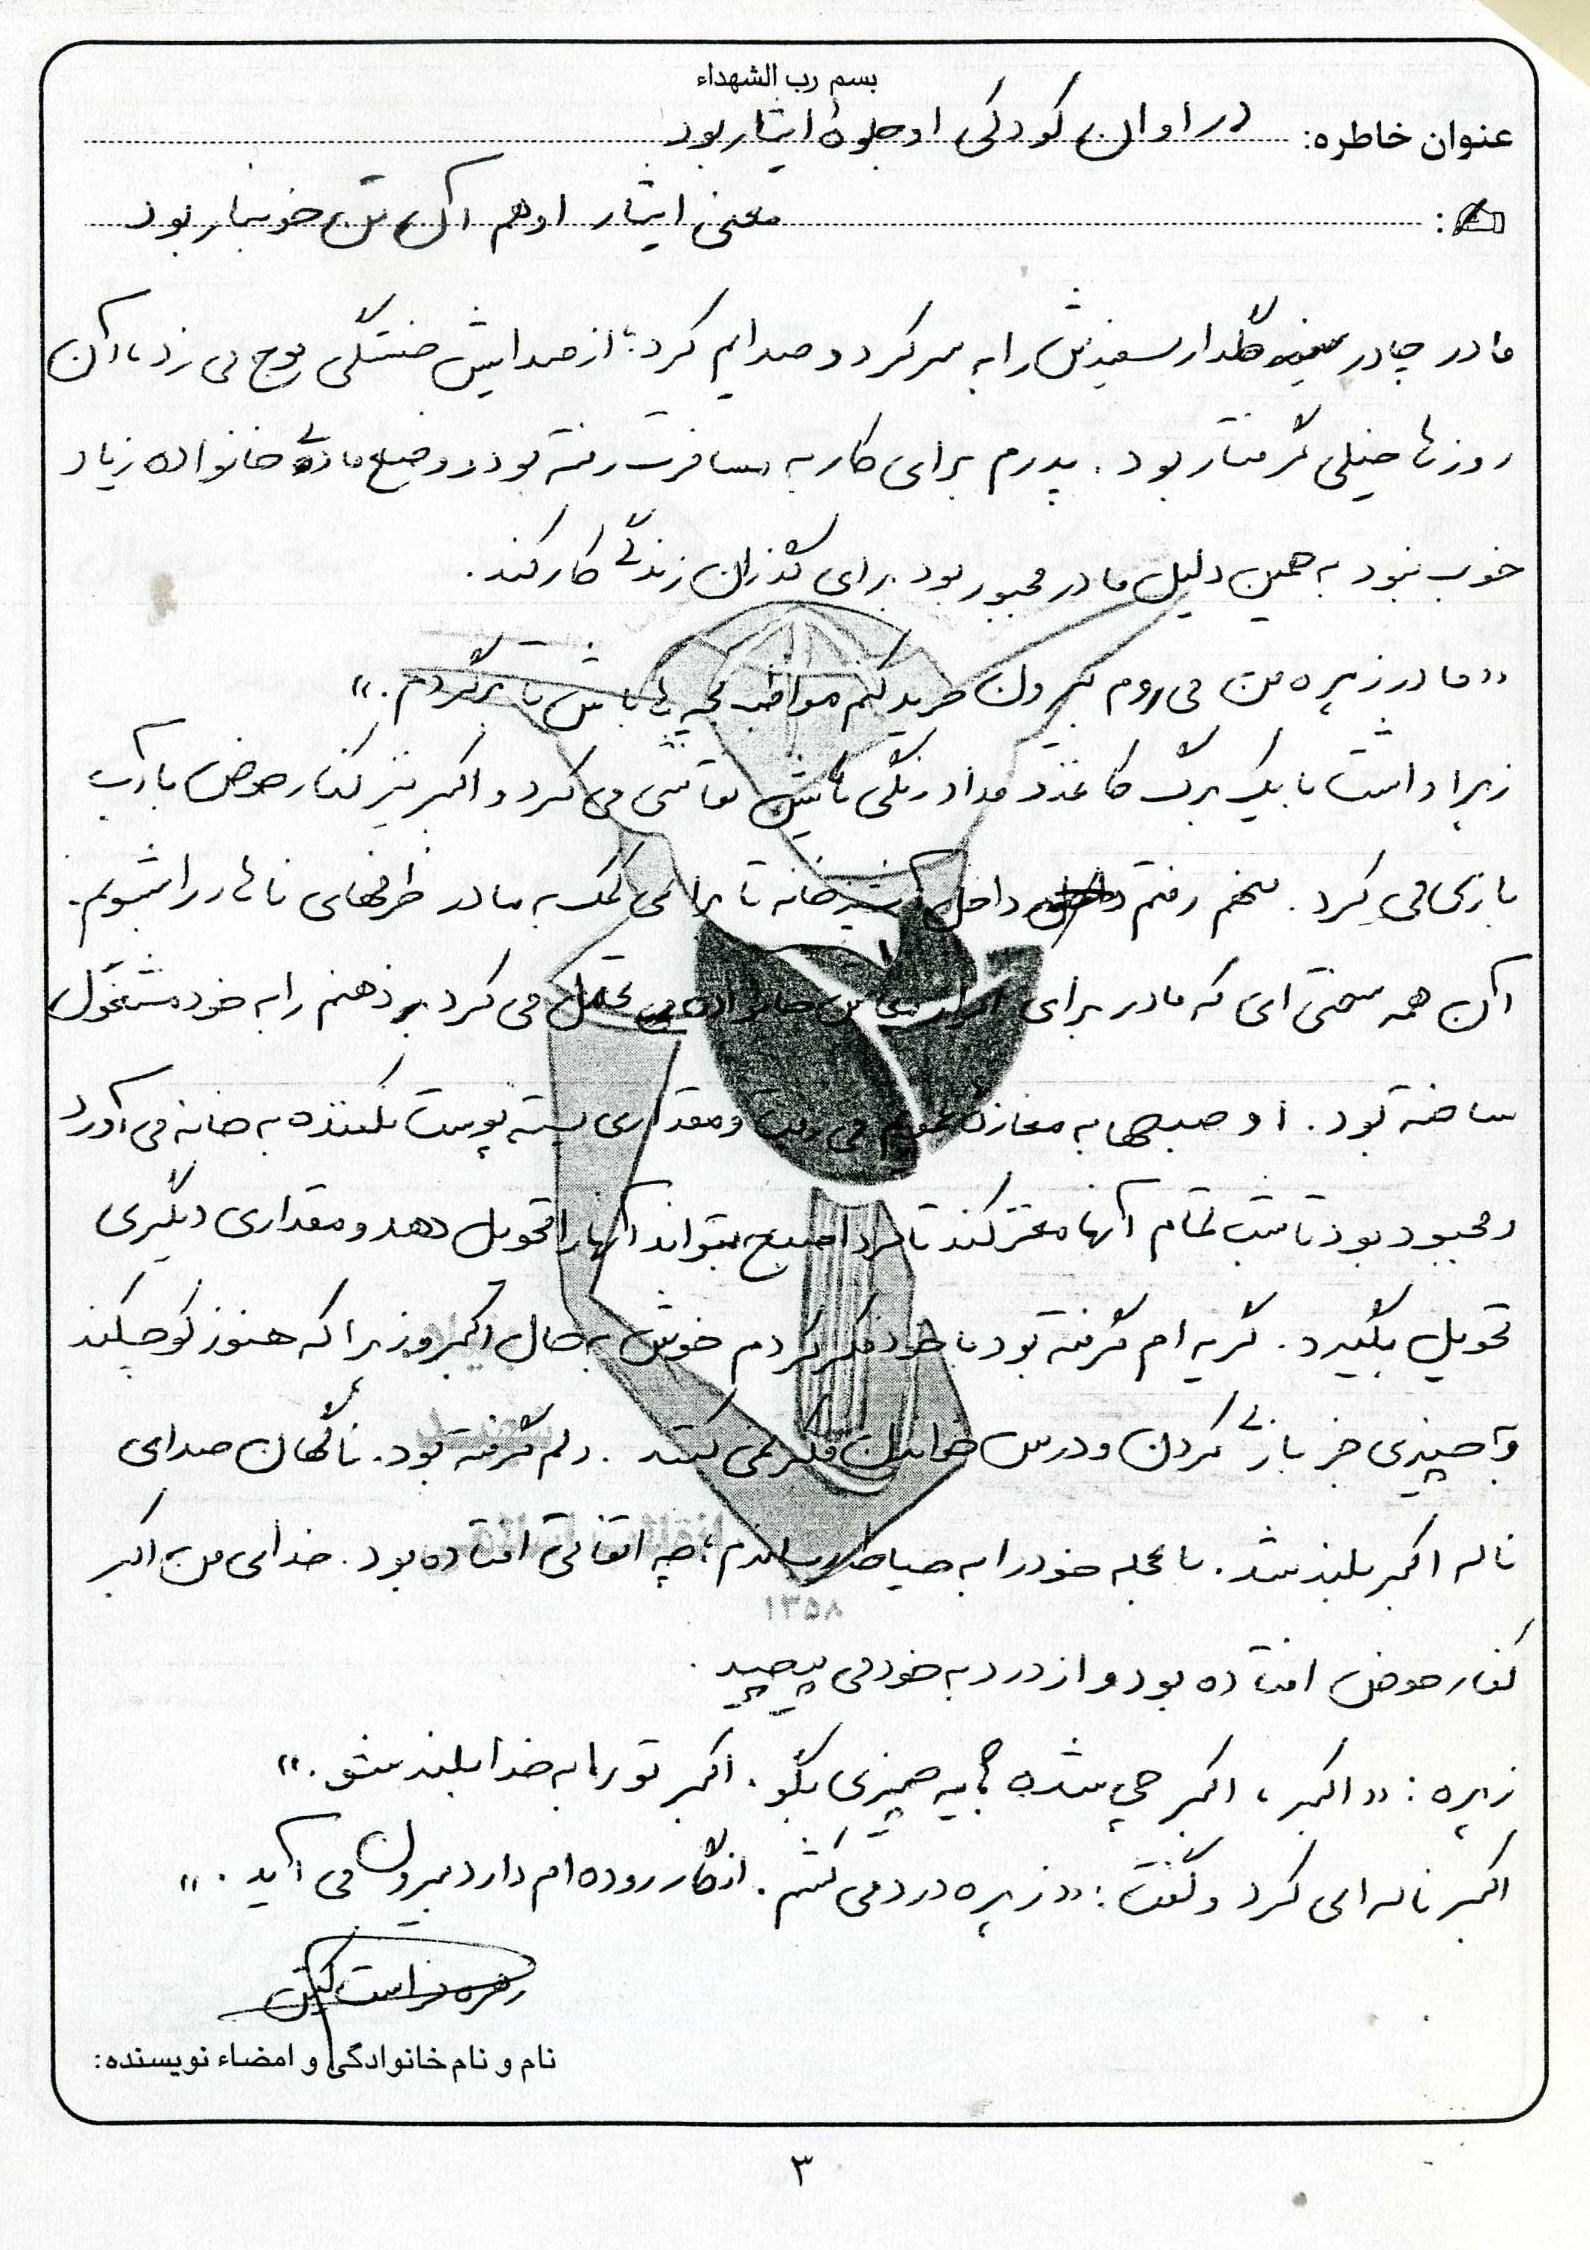 بسم رب الشهداء
عنوان خاطره: در اوان کودکی او جلوهٔ ایثار بود
معنی ایثار او هم آن تن خونبار بود
مادر چادر گلدار سفیدش را به سر کرد و صدایم کرد؛ از صدایش خستگی موج می زد، آن
روزها خیلی گرفتار بود. پدرم برای کار به مسافرت رفته بود و وضع مادی خانواده زیاد
خوب نبود به همین دلیل مادر مجبور بود برای گذران زندگی کار کند.
«مادر زهره من می روم بیرون خرید کنم مواظب بچه ها باش تا برگردم.»
زهرا داشت با یک برگ کاغذ و مداد رنگی هایش نقاشی می کرد و اکبر نیز کنار حوض با آب
بازی می کرد. منهم رفتم داخل آشپزخانه تا برای کمک به مادر ظرفهای ناهار را بشویم.
آن همه سختی ای که مادر برای خانواده تحمل می کرد ذهنم را به خود مشغول
ساخته بود. او صبحها به مغازهٔ عمویم می رفت و مقداری پسته پوست نکنده به خانه می آورد
و مجبور بود تا شب تمام آنها مغز کند تا فردا صبح بتواند آنها را تحویل دهد و مقداری دیگری
تحویل بگیرد. گریه ام گرفته بود با خود فکر کردم خوش به حال اکبر و زهرا که هنوز کوچکند
و به چیزی جز بازی کردن و درس خواندن فکر نمی کنند. دلم گرفته بود. ناگهان صدای
ناله اکبر بلند شد. با عجله خود را به حیاط رساندم؛ چه اتفاقی افتاده بود. خدای من اکبر
کنار حوض افتاده بود و از درد به خود می پیچید.
زهره: «اکبر، اکبر چی شده؟ یه چیزی بگو. اکبر تو را به خدا بلند شو.»
اکبر ناله ای کرد و گفت: «زهره درد می کشم. انگار روده ام دارد بیرون می آید.»
زهره فراست
نام و نام خانوادگی و امضاء نویسنده:
۱۳۵۸
۳